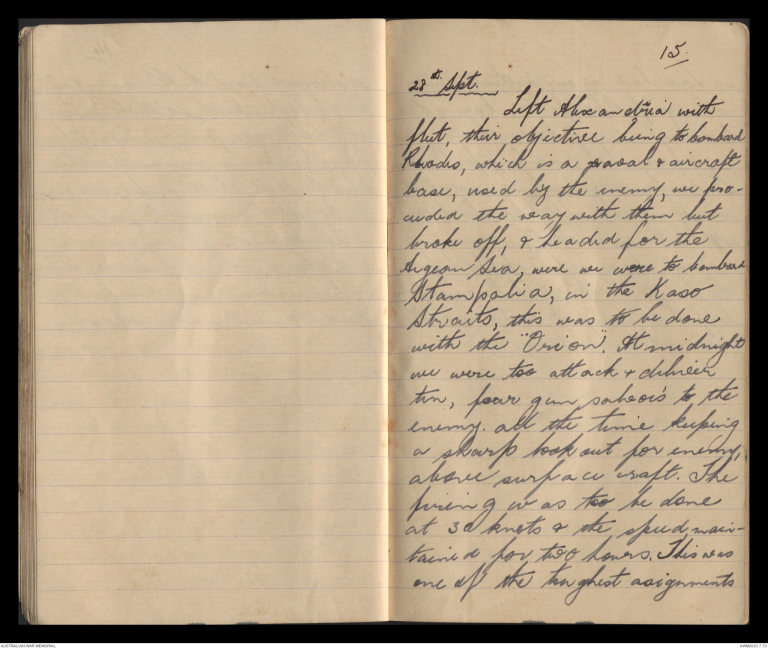 15.
28th Sept.
Left Alexandria with
fleet, their objective being to bombard
Rhodes, which is a naval & aircraft
base, used by the enemy, we pro-
ceeded the way with them but
broke off, & headed for the
Aegean Sea, were we were to bombard
Stampalia, in the Kaso
Straits, this was to be done
with the "Orion". At midnight
we were too attack & deliver
ten, four gun salvois to the
enemy. all the time keeping
a sharp look out for enemy,
above surface craft. The
firing was too be done
at 30 knots & the speed main-
tained for two hours. This was
one of the toughest asignments
AUSTRALIAN WAR MEMORIAL
AWM2020.7.70